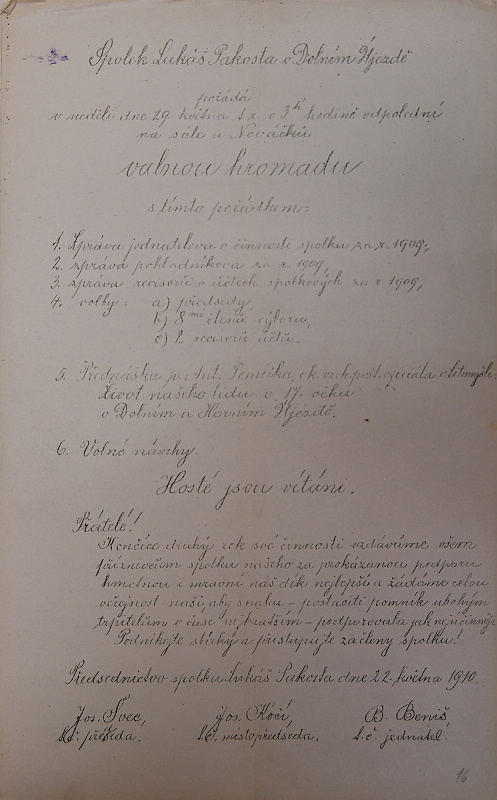 Spolek Lukáš Pakosta v Dolním Újezdě
pořádá
v neděli dne 29. května t.r. o 3tí hodině odpolední
na sále u Nováčků
valnou hromadu
s tímto pořádkem:
1. Zpráva jednatelova o činnosti spolku za r. 1909,
2. zpráva pokladníkova za r. 1909,
3. zpráva revisorů o účtech spolkových za r. 1909,
4. volby: a) předsedy,
b) 8mi členů výboru,
c) 2 revisorů účtů.
5. Přednáška p. Ant. Tomíčka, c.k. vrch. pošt. oficiála v Litomyšli:
Život našeho lidu v 17. věku
v Dolním a Horním Újezdě.
6. Volné návrhy.
Hosté jsou vítáni.
Přátelé!
Končíce druhý rok své činnosti vzdáváme všem
příznivcům spolku našeho za prokázanou podporu
hmotnou i mravní náš dík nejlepší a žádáme celou
veřejnost naši, aby snahu – postaviti pomník ubohým
trpitelům v čase nejkratším – podporovala jak nejúčinněji
Podnikejte sbírky a přistupujte za členy spolku!
Předsednictvo spolku Lukáš Pakosta dne 22. května 1910.
Jos. Švec, Jos. Kočí, B. Beniš,
t.č. předseda. t.č. místopředseda. t.č. jednatel.
16